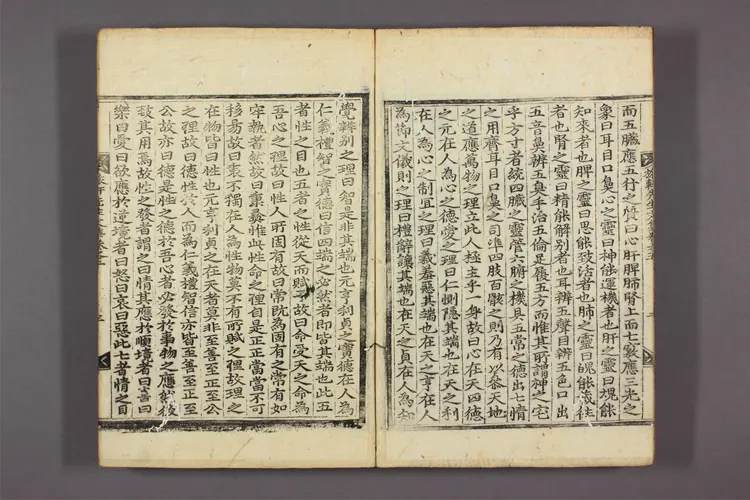 而五臟應五行之質曰心肝脾肺腎上面七竅應三光之
象曰耳目口鼻心之靈曰神能運機者也肝之靈曰魂能
知來者也脾之靈曰思能致活者也肺之靈曰魄能藏往
者也腎之靈曰精能解別者也耳辨五聲目辨五色口出
五音鼻辨五臭手治五倫足履五方而惟其所謂神之宅
乎方寸者統四臟之靈管六腑之機具五常之德出七情
之用齊耳目口鼻之司準四肢百骸之則乃有以參天地
之道應萬物之理立此人極主乎一身故曰心在天四德
之元在人為心之德愛之理曰仁惻隱其端也在天之利
在人為心之制宜之理曰義羞惡其端也在天之亨在人
為節文儀則之理曰禮辭讓其端也在天之貞在人為知
覺辨別之理曰智是非其端也元亨利貞之實德在人為
仁義禮智之實德曰信四端之必然者即皆其端也此五
者性之目也五者之性從天而賦予故曰命受天之命為
吾心之理故曰性人所固有故曰常既為固有之常有如
宰執者然故曰秉彝惟此性命之理自是正正當當不可
移易故曰衷不獨在人為性物莫不有所賦之理故理之
在物皆曰性也元亨利貞之在天者莫非至善至正至公
之理故曰德性於人者仁義禮智信亦皆至善至正至
公故亦曰德是性之德於吾心者必發於事物之應然後
致其用焉故性之發者謂之曰情其應於順境者曰喜曰
樂曰愛曰欲應於逆境者曰怒曰哀曰惡此七者情之目